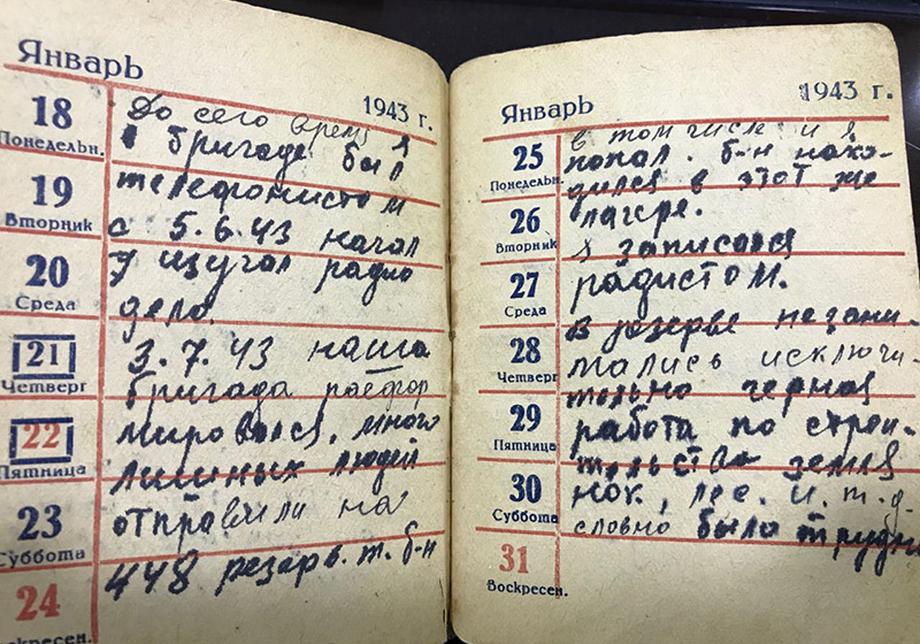 Январь
1943 г.
18
Понедельн.
19
Вторник
20
Среда
21
Четверг
22
Пятница
23
Суббота
24
скресен.
До сего время я
в бригаде был
телефонистом
с 5.6.43 начал
изучал радио
дело.
3.7.43 наша
бригада расфор
мировался, много
лишных людей
отправили на
448 резерв. т. б-н
Январь
1943 г.
25
Понедельн.
26
Вторник
27
Среда
28
Четверг
29
Пятница
30
Суббота
31
Воскресен.
в том числе и я
попал. б-н нахо-
дился в этот же
лагере.
я записался
радистом.
в резерве незани
мались исключи
тельно черная
работа по строи-
тельства земля
нок, лес. и. т. д
словно было трудно